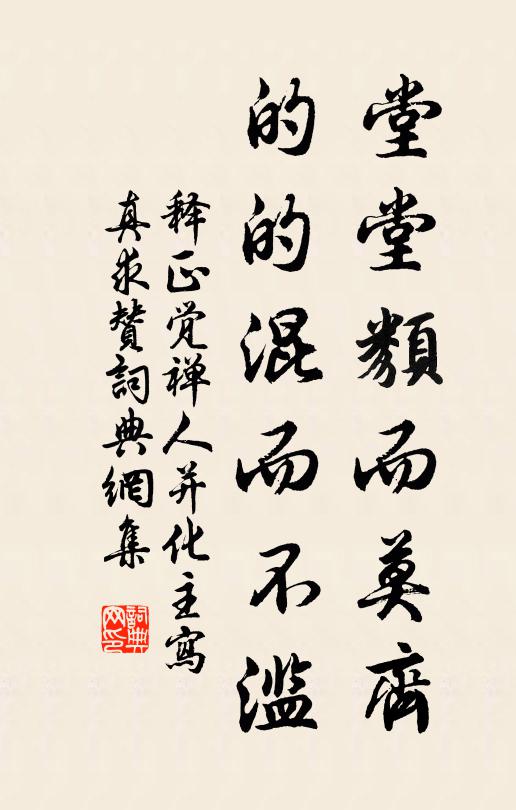 堂堂類而莫齊
的的混而不濫
释正觉禅人并化主寫
真求贊詞典網集
詞典网印